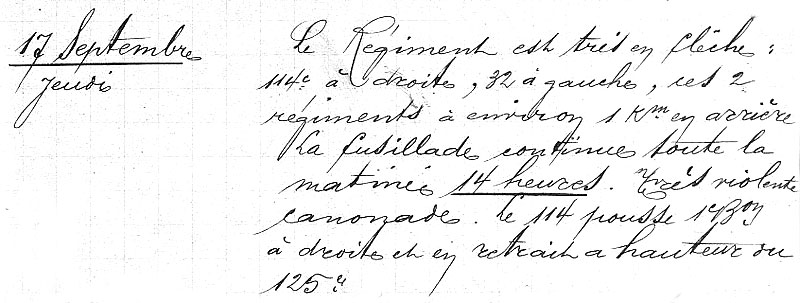 17 Septembre
Jeudi
Le Régiment est très en flêche :
114e à droite, 32 à gauche, ces 2
régiments à environ 1 Km en arrière
La fusillade continue toute la
matinée 14 heures. Très violente
canonade. le 114 pousse 1 Bon
à droite et en retrait a hauteur du
125e